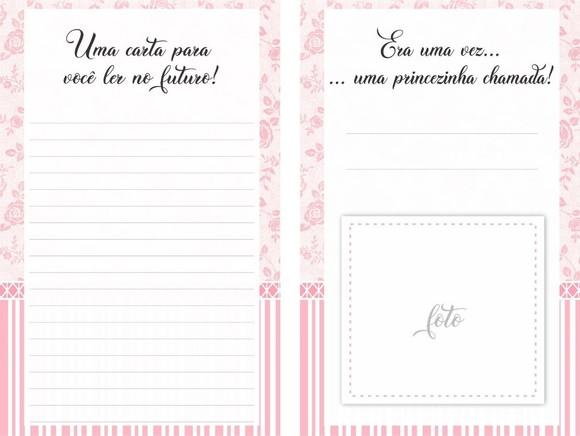 Uma carta para
você ler no futuro!
Era uma vez...
... uma princezinha chamada!
foto